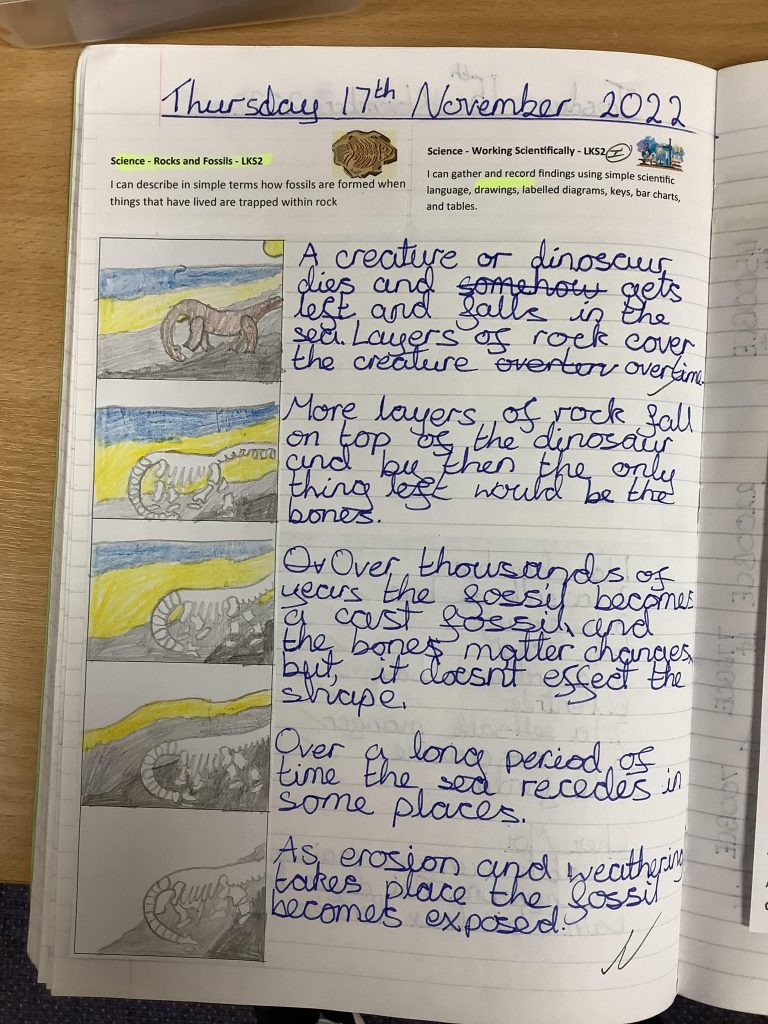 Thursday 17th November 2022
Science - Rocks and Fossils - LKS2
I can describe in simple terms how fossils are formed when
things that have lived are trapped within rock
Science - Working Scientifically - LKS2 I
I can gather and record findings using simple scientific
language, drawings, labelled diagrams, keys, bar charts,
and tables.
A creature or dinosaur
dies and somehow gets
left and falls in the
sea. Layers of rock cover
the creature overtov overtime.
More layers of rock fall
on top of the dinosaur
and by then the only
thing left would be the
bones.
Ov Over thousands of
years the fossil becomes
a cast fossil, and
the bones matter changes,
but, it doesnt effect the
shape.
Over a long period of
time the sea recedes in
some places.
As erosion and weathering
takes place the fossil
becomes exposed.